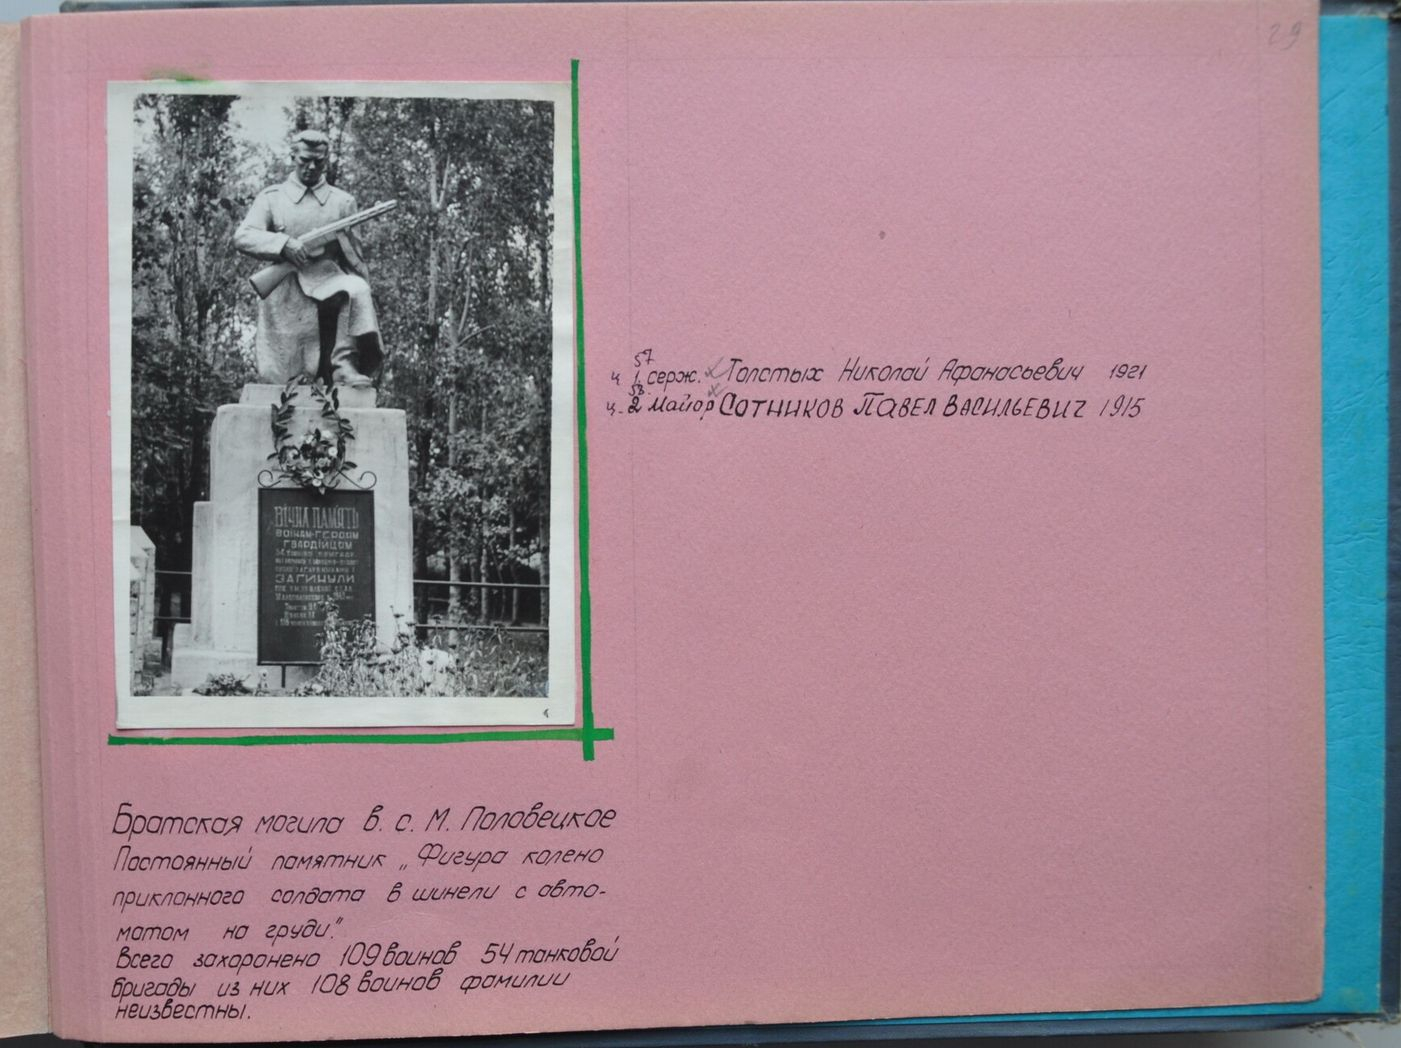 29
ВІЧНА ПАМ'ЯТЬ
ВОЇНАМ-ГЕРОЯМ
ГВАРДІЙЦЯМ
ЗАГИНУЛИ
57
ч 1. серж. Толстых Николай Афанасьевич 1921
58
ч. 2 Майор Сотников Павел Васильевич 1915
Братская могила в. с. М. Половецкое
Постоянный памятник „Фигура колено
приклонного солдата в шинели с авто-
матом на груди."
Всего захоронено 109 воинов 54 танковой
бригады из них 108 воинов фамилии
неизвестны.